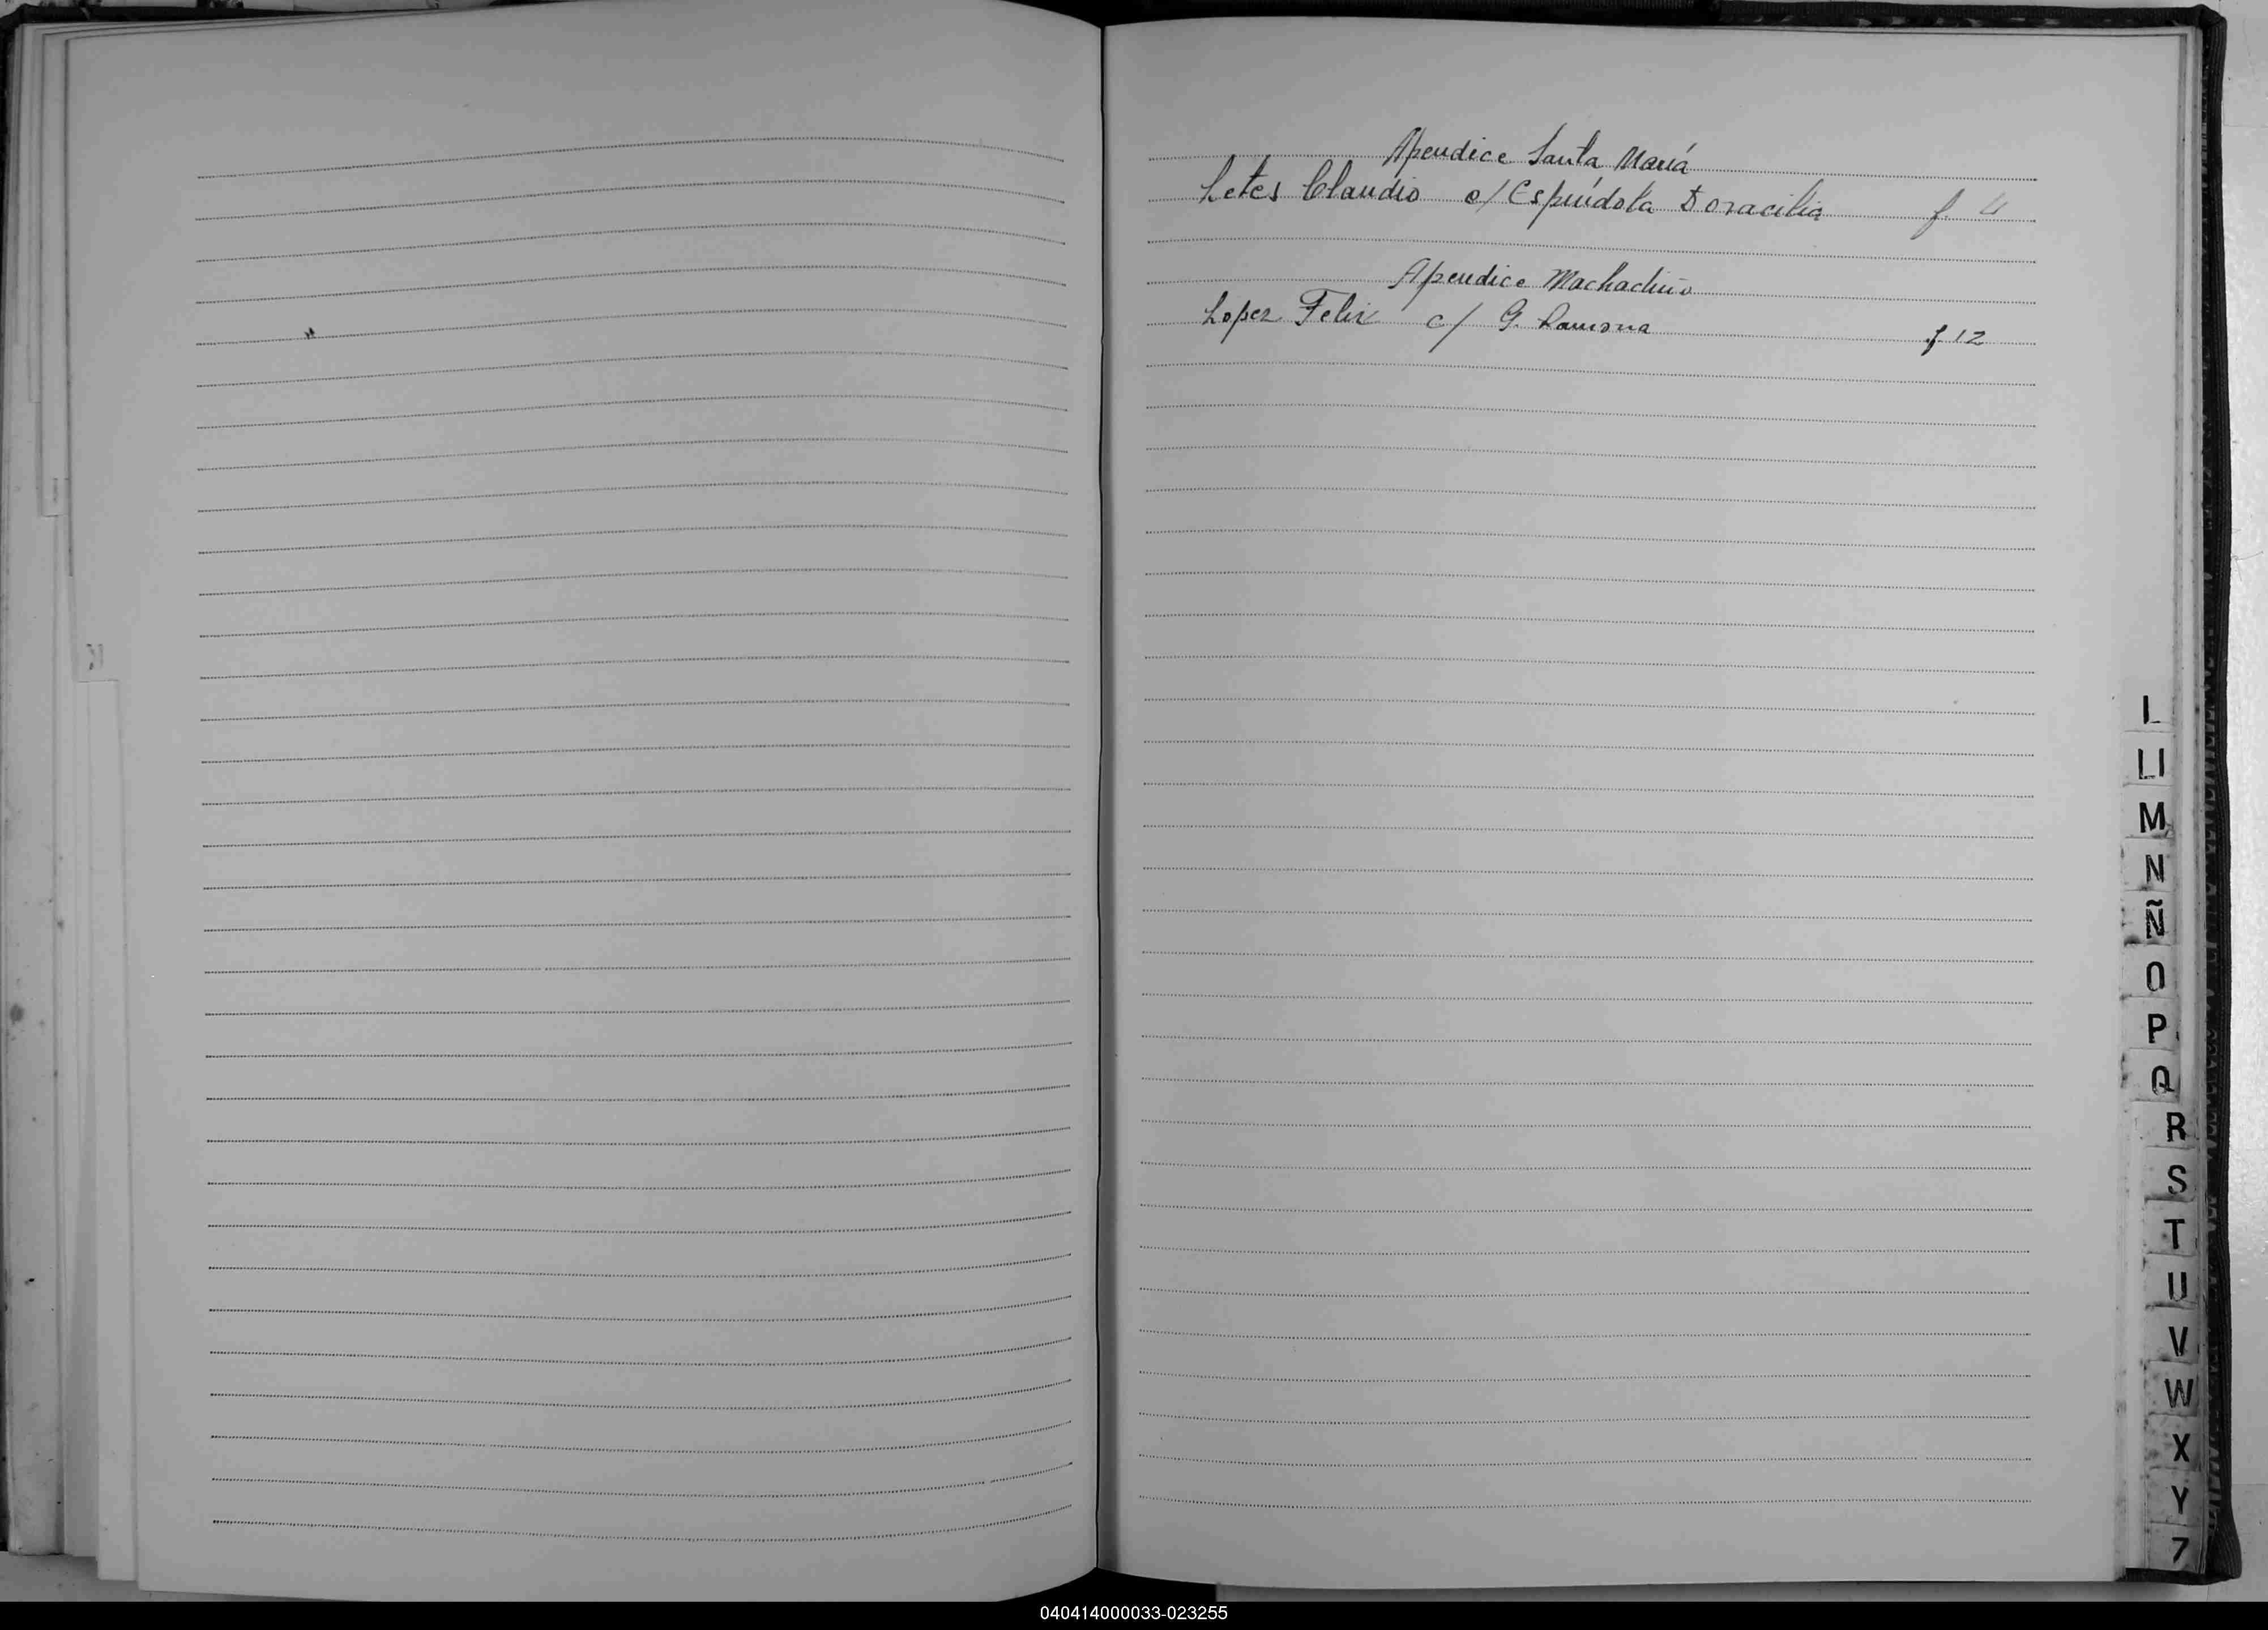 Apendice Santa María
Letes Claudio c/ Espíndola Doracilia f. 4
Apendice Machadiño
Lopez Felix c/ G. Ramona f 12
L
Ll
M
N
Ñ
O
P
Q
R
S
T
U
V
W
X
Y
Z
040414000033-023255